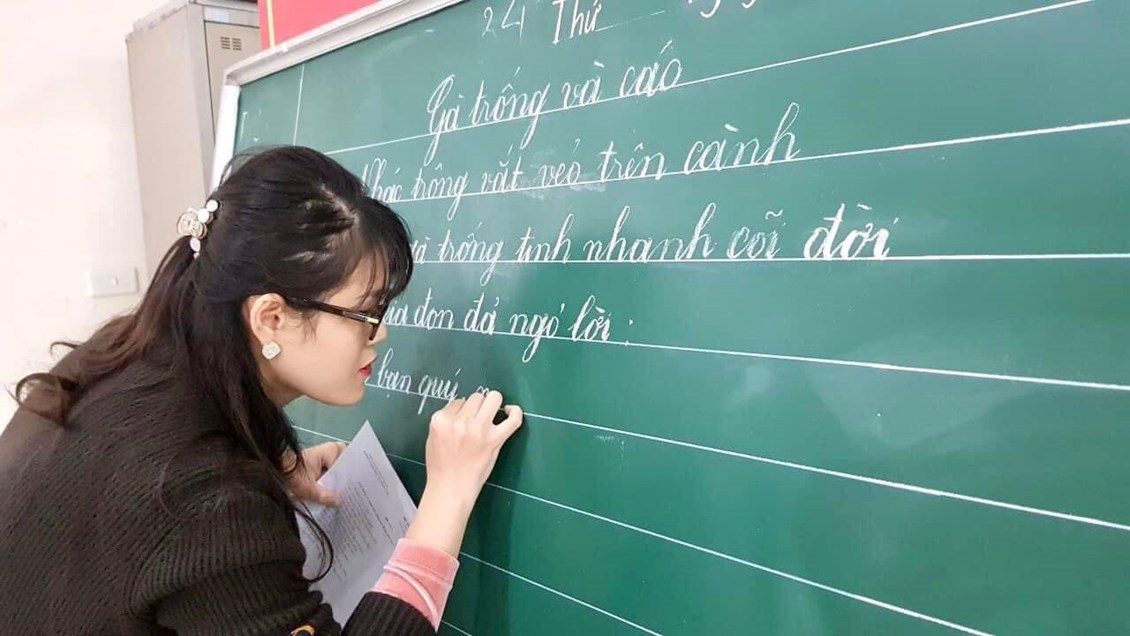 24 Thứ
Gà trống và cáo
Nhác trông vắt vẻo trên cành
trống tinh nhanh cõi đời
đon đả ngỏ lời :
bạn quý